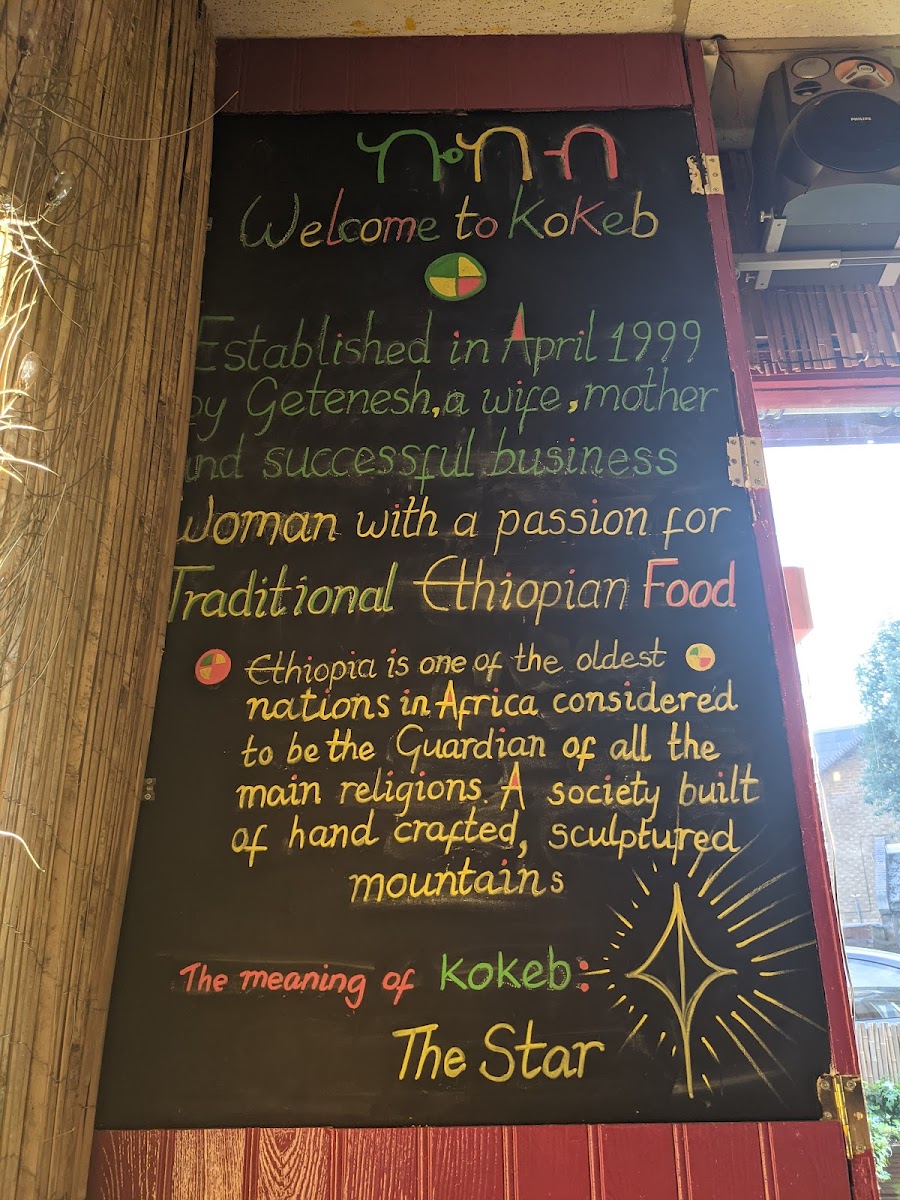 ኰከብ
Welcome to KoKeb
Established in April 1999
by Getenesh, a wife, mother
and successful business
Woman with a passion for
Traditional Ethiopian Food
Ethiopia is one of the oldest
nations in Africa considered
to be the Guardian of all the
main religions. A society built
of hand crafted, sculptured
mountains
The meaning of Kokeb:
The Star
PHILIPS